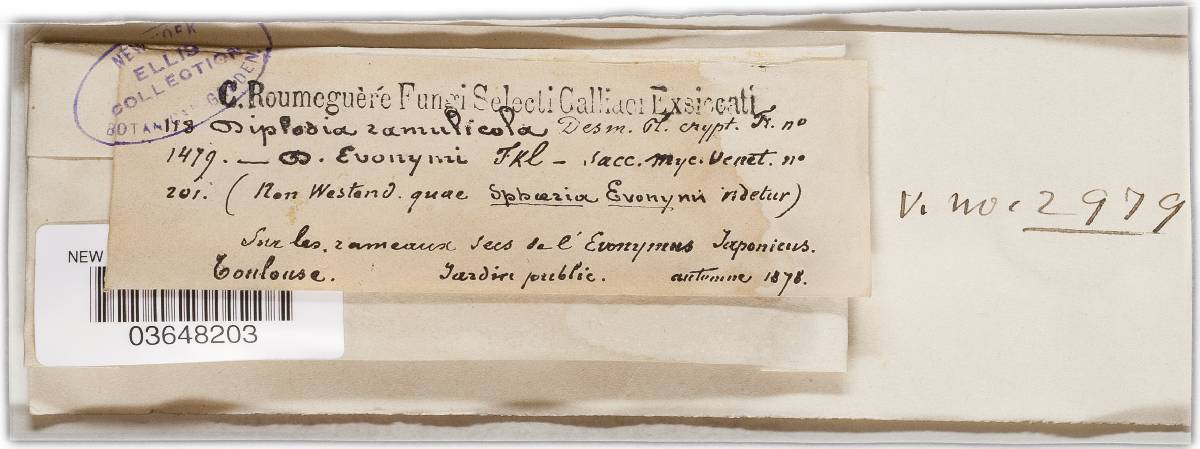 NEW YORK
ELLIS
COLLECTION
BOTANICAL GARDEN.
C. Roumeguère Fungi Selecti Galliaei Exsiccati
178 Diplodia ramulicola Desm. Pl. crypt. Fr. no
1479. — D. Evonymi Fkl — Sacc. Myc. Venet. no
201. (Non Westend. quae Sphæria Evonymi videtur)
Sur les rameaux secs de l'Evonymus Japonicus.
Toulouse. Jardin public. automne 1878.
V. no. 2979
NEW
03648203